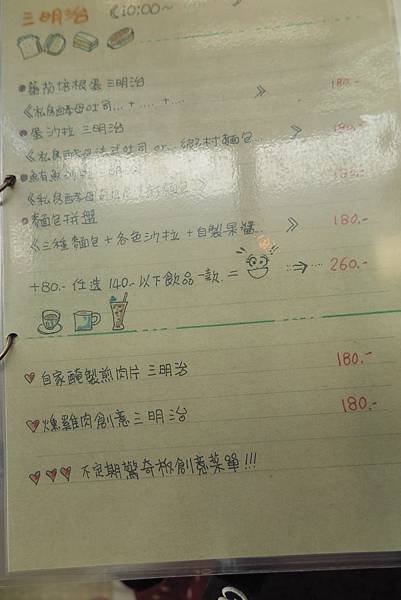 三明治 《10:00~
●蕃茄培根蛋三明治 180.-
《私房酵母吐司...+.....+.... 》
●蛋沙拉三明治 180.-
《私房酵母法式吐司 or ...鄉村麵包... 》
●鮪魚沙拉三明治 180.-
《私房酵母
●麵包拼盤 180.-
《三種麵包+各色沙拉+自製果醬... 》
+80.- 任選 140.-以下飲品一款. = ⇒.... 260.-
♡自家醃製煎肉片三明治 180.-
♡燻雞肉創意三明治 180.-
♡♡♡ 不定期驚奇板創意菜單!!!